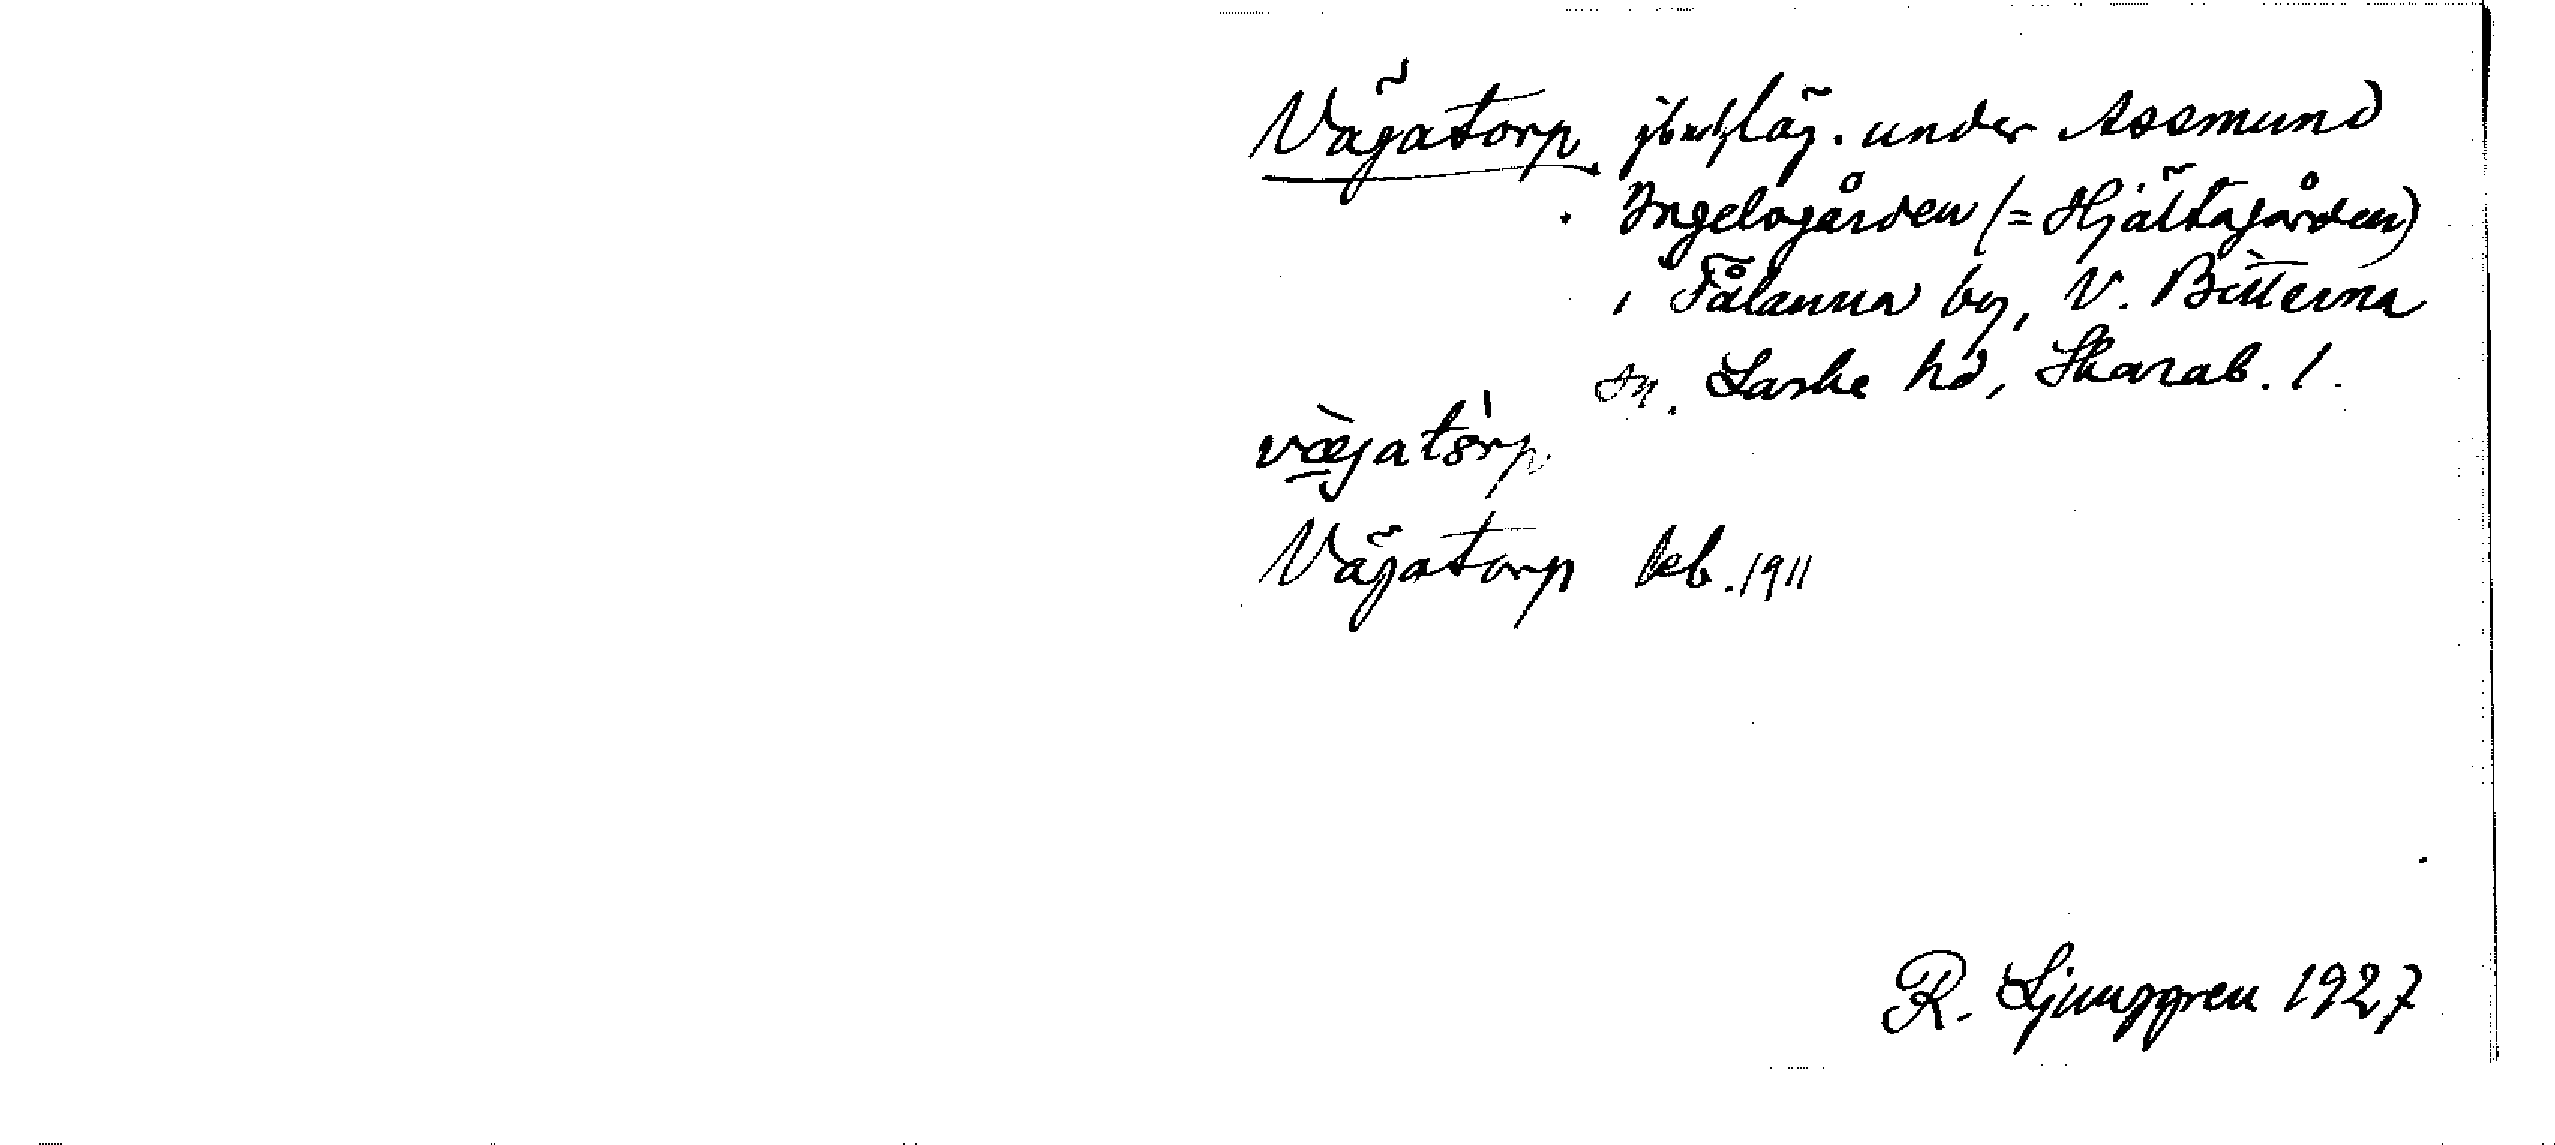 Vägatorp, jbruksläg. under Assmund
Ingelsgården (= Hjältagården)
i Fålanna by, V. Bitterna
sn. Laske hd, Skarab. l.
vægatorp
Vägatorp kb. 1911
R. Ljunggren 1927